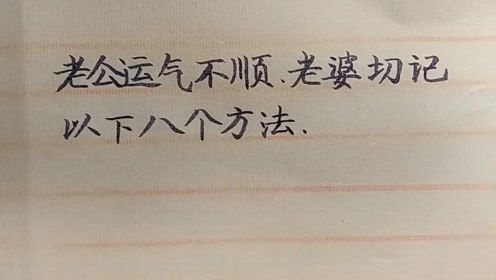 老公运气不顺.老婆切记
以下八个方法.